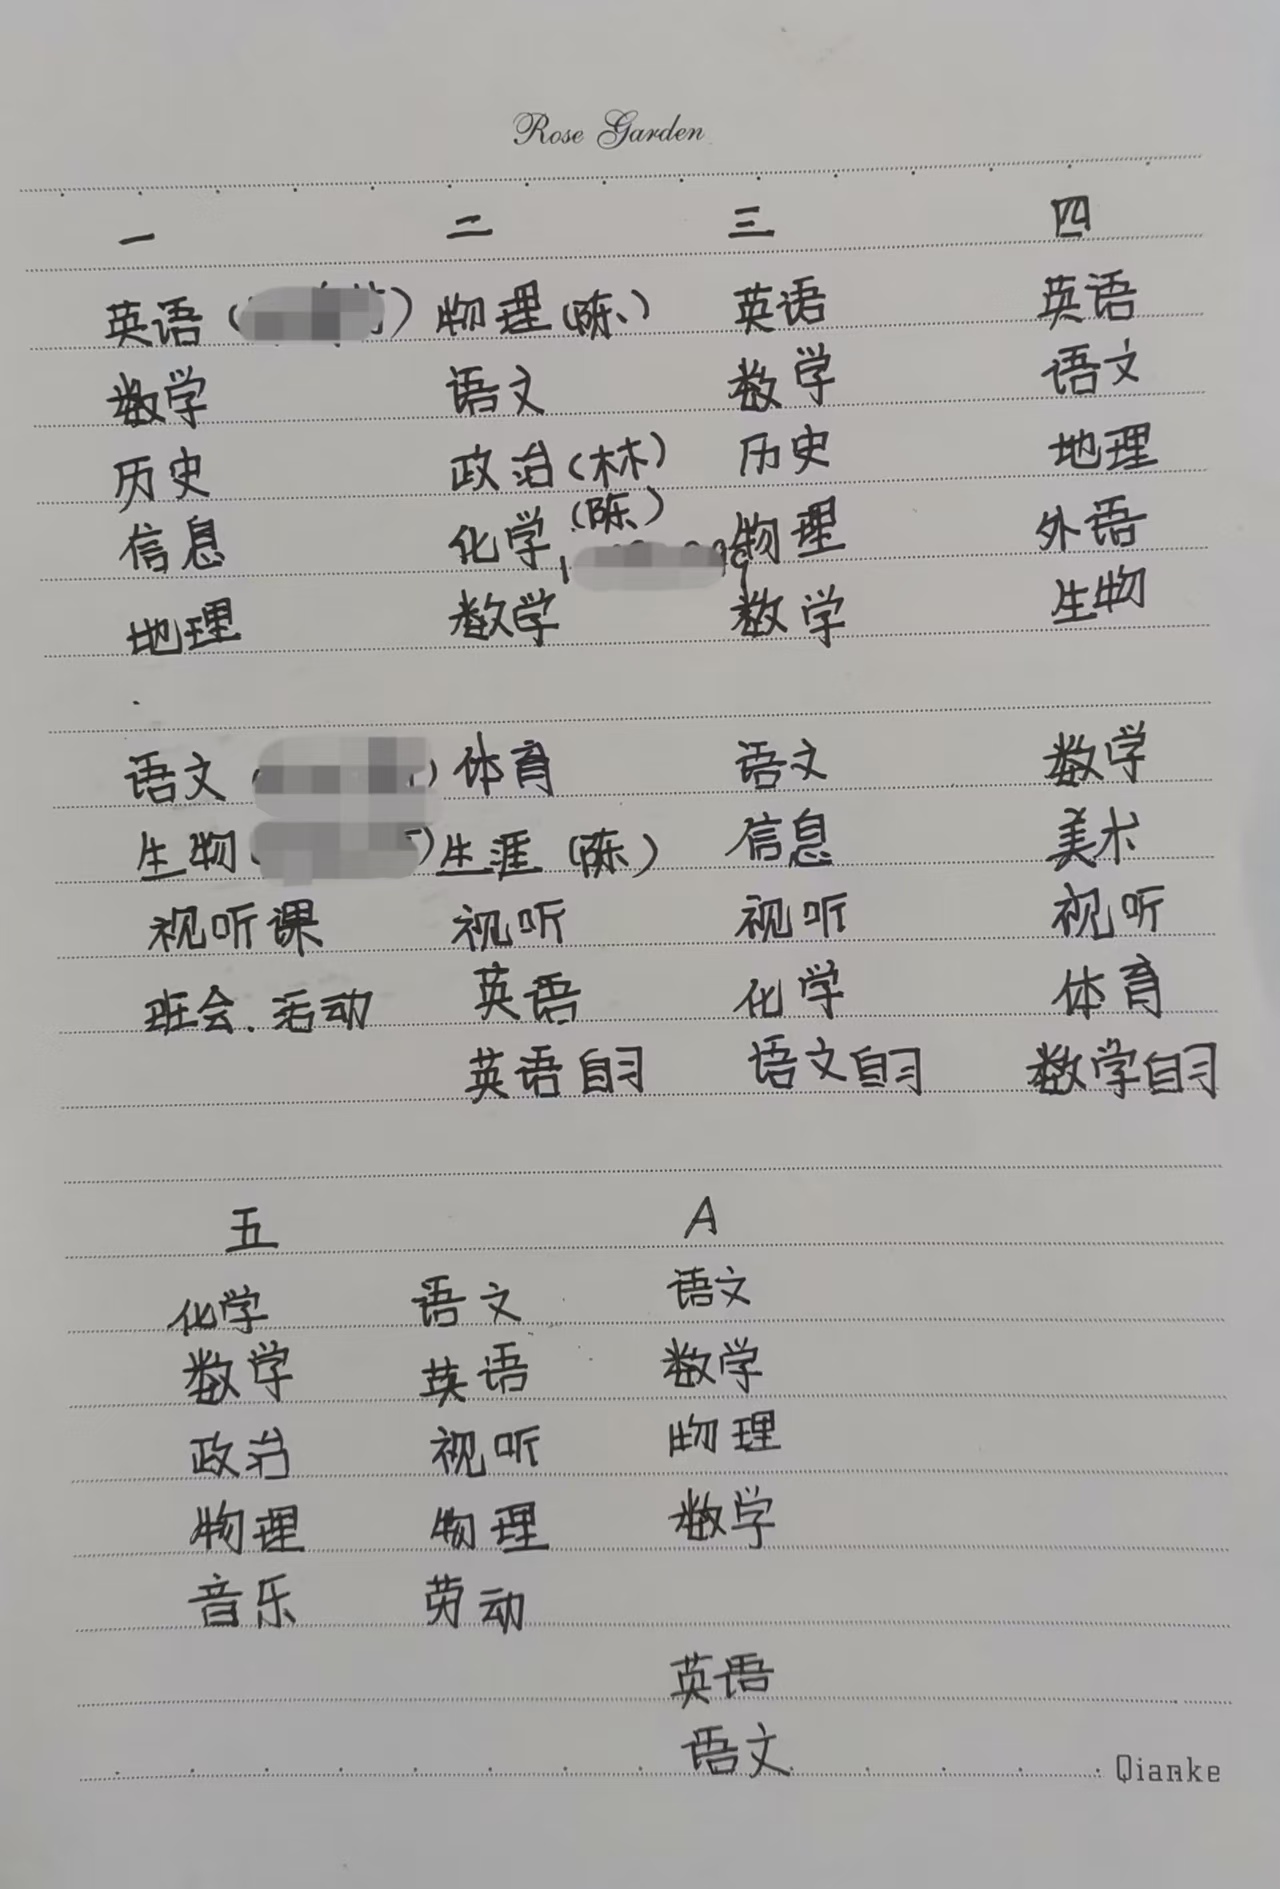 Rose Garden
一 二 三 四
英语 ( ) 物理 (陈、) 英语 英语
数学 语文 数学 语文
历史 政治 (林) 历史 地理
信息 化学 (陈、) 物理 外语
地理 数学 数学 生物
语文 ( ) 体育 语文 数学
生物 ( ) 生涯 (陈) 信息 美术
视听课 视听 视听 视听
班会、活动 英语 化学 体育
英语自习 语文自习 数学自习
五 A
化学 语文 语文
数学 英语 数学
政治 视听 物理
物理 物理 数学
音乐 劳动
英语
语文
Qianke